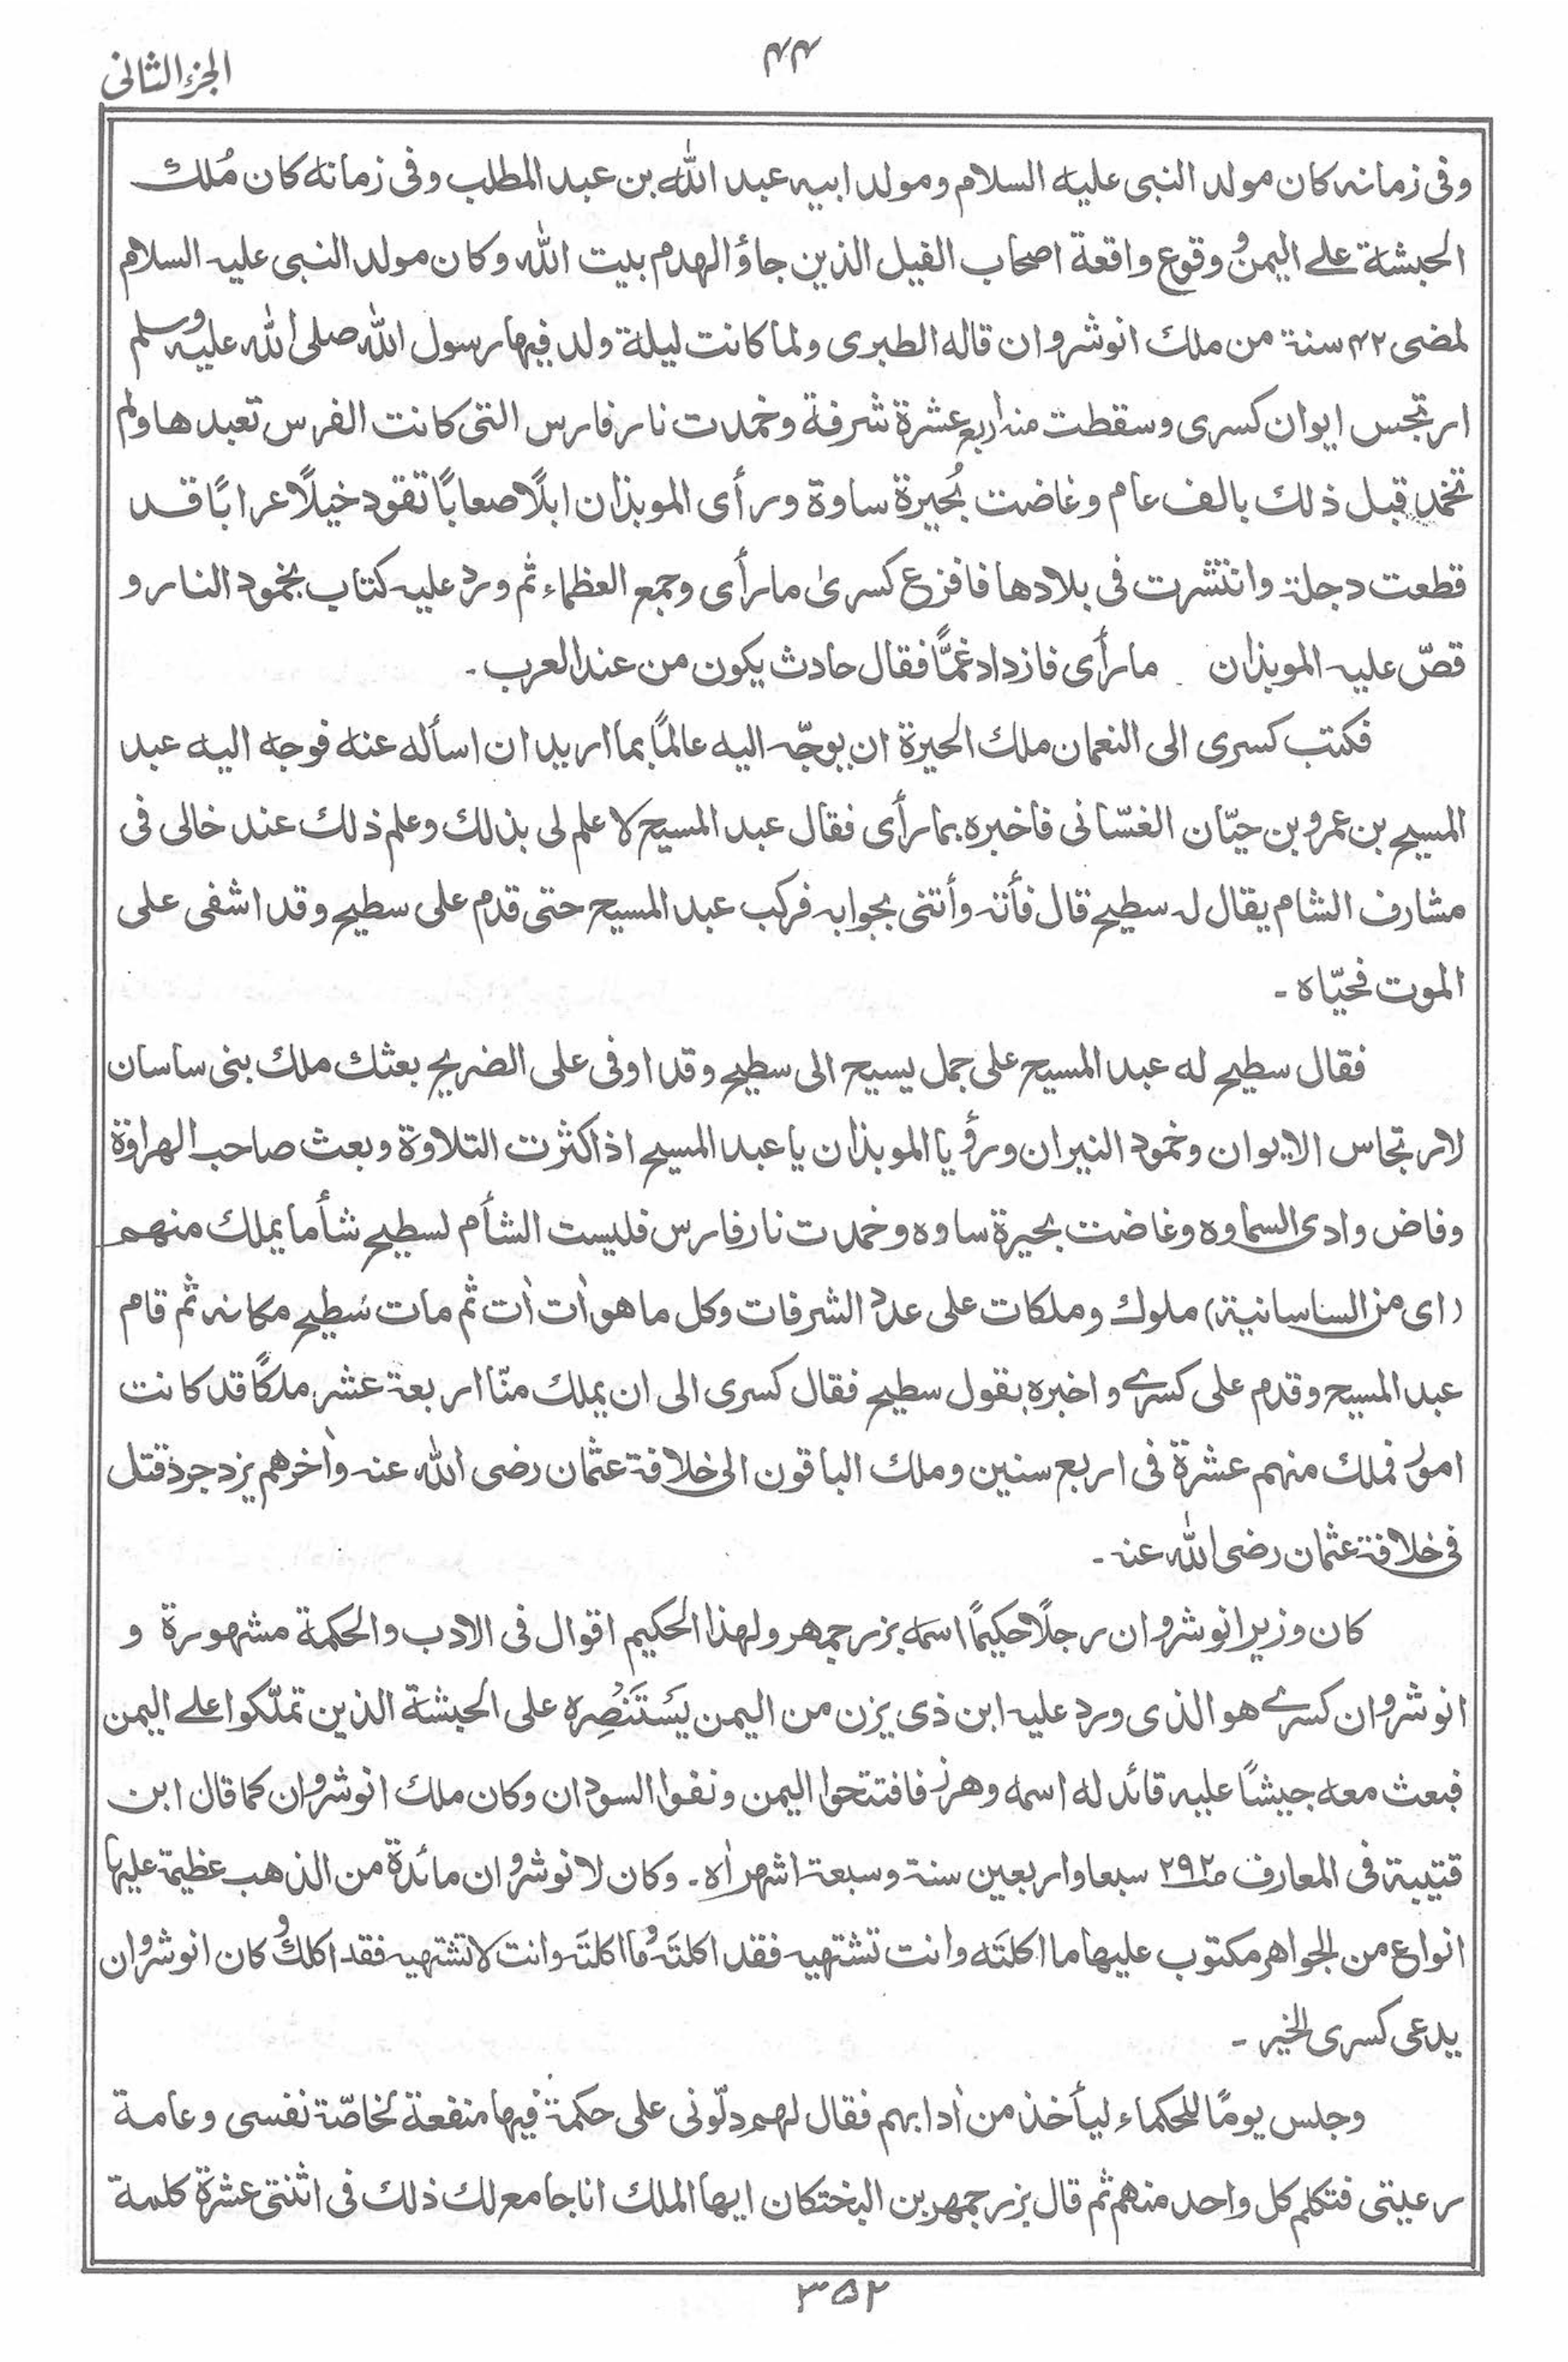 ۴۴
الجزء الثانی
وفی زمانہ کان مولد النبی علیہ السلام ومولد ابیہ عبد اللّٰہ بن عبد المطلب وفی زمانہ کان مُلک
الحبشۃ علے الیمن و وقوع واقعۃ اصحاب الفیل الذین جاؤ الھدم بیت اللّٰہ وکان مولد النبی علیہ السلام
لمضی ۴۲ سنۃ من ملک انوشروان قالہ الطبری ولما کانت لیلۃ ولد فیھا رسول اللّٰہ صلی اللّٰہ علیہ وسلم
ارتجس ایوان کسری وسقطت منہ اربع عشرۃ شرفۃ وخمدت نار فارس التی کانت الفرس تعبدھا ولم
تخمد قبل ذلک بالف عام وغاضت بُحیرۃ ساوۃ ورأی الموبذان ابلًا صعابًا تقود خیلًا عرابًا قد
قطعت دجلۃ وانتشرت فی بلادھا فافزع کسریٰ ما رأی وجمع العظماء ثم ورد علیہ کتاب بخمود النار و
قصّ علیہ الموبذان ما رأی فازداد غمًّا فقال حادث یکون من عند العرب۔
فکتب کسری الی النعمان ملک الحیرۃ ان یوجّہ الیہ عالمًا بما ارید ان اسألہ عنہ فوجہ الیہ عبد
المسیح بن عمرو بن حیّان الغسّانی فاخبرہ بما رأی فقال عبد المسیح لا علم لی بذلک وعلم ذلک عند خالی فی
مشارف الشام یقال لہ سطیح قال فأتہ وأتنی بجوابہ فرکب عبد المسیح حتی قدم علی سطیح وقد اشفی علی
الموت فحیّاہ۔
فقال سطیح لہ عبد المسیح علی جمل یسیح الی سطیح وقد اوفی علی الضریح بعثک ملک بنی ساسان
لارتجاس الایوان وخمود النیران ورؤیا الموبذان یا عبد المسیح اذا کثرت التلاوۃ وبعث صاحب الھراوۃ
وفاض وادی السماوہ وغاضت بحیرۃ ساوہ وخمدت نار فارس فلیست الشأم لسطیح شأما یملک منھم
(ای من الساسانیۃ) ملوک وملکات علی عدد الشرفات وکل ما ھو اٰت اٰت ثم مات سَطیح مکانہ ثم قام
عبد المسیح وقدم علی کسرے واخبرہ بقول سطیح فقال کسری الی ان یملک منّا اربعۃ عشر ملکًا قد کانت
امورٌ فملک منھم عشرۃ فی اربع سنین وملک الباقون الی خلافۃ عثمان رضی اللّٰہ عنہ واٰخرھم یزدجرد قتل
فی خلافۃ عثمان رضی اللّٰہ عنہ۔
کان وزیر انوشروان رجلًا حکیمًا اسمہ بزرجمھر ولھذا الحکیم اقوال فی الادب والحکمۃ مشھورۃ و
انوشروان کسرے ھو الذی ورد علیہ ابن ذی یزن من الیمن یَستَنْصِرہ علی الحبشۃ الذین تملّکوا علے الیمن
فبعث معہ جیشًا علیہ قائد لہ اسمہ وھرز فافتتحوا الیمن ونفوا السودان وکان ملک انوشروان کما قال ابن
قتیبۃ فی المعارف ص ۲۹۲ سبعا واربعین سنۃ وسبعۃ اشھر اٰہ۔ وکان لانوشروان مائدۃ من الذھب عظیمۃ علیھا
انواع من الجواھر مکتوب علیھا ما اکلتَہ وانت تشتھیہ فقد اکلتَہ وما اکلتَہ وانت لا تشتھیہ فقد اکلک و کان انوشروان
یدعی کسری الخیر۔
وجلس یومًا للحکماء لیأخذ من اٰدابھم فقال لھم دلّونی علی حکمۃ فیھا منفعۃ لخاصّۃ نفسی وعامۃ
رعیتی فتکلم کل واحد منھم ثم قال بزرجمھر بن البختکان ایھا الملک انا جامع لک ذلک فی اثنتی عشرۃ کلمۃ
۳۵۲